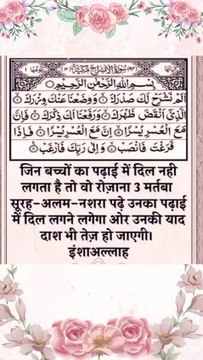 بِسْمِ اللّٰهِ الرَّحْمٰنِ الرَّحِيْمِ
اَلَمْ نَشْرَحْ لَكَ صَدْرَكَ ۙ وَوَضَعْنَا عَنْكَ وِزْرَكَ ۙ
الَّذِيْٓ اَنْقَضَ ظَهْرَكَ ۙ وَرَفَعْنَا لَكَ ذِكْرَكَ ؕ فَاِنَّ
مَعَ الْعُسْرِ يُسْرًا ۙ اِنَّ مَعَ الْعُسْرِ يُسْرًا ؕ فَاِذَا
فَرَغْتَ فَانْصَبْ ۙ وَاِلٰى رَبِّكَ فَارْغَبْ
जिन बच्चों का पढ़ाई में दिल नही
लगता है तो वो रोज़ाना 3 मर्तबा
सूरह-अलम-नशरा पढ़े उनका पढ़ाई
में दिल लगने लगेगा ओर उनकी याद
दाश भी तेज़ हो जाएगी।
इंशाअल्लाह